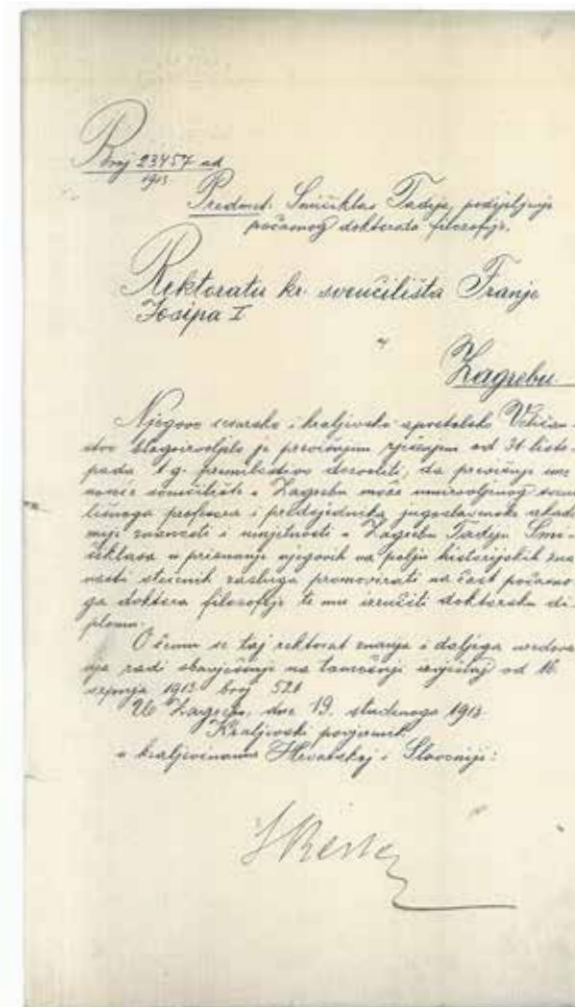 Broj 23457 ad
1913
Predmet: Smičiklas Tadija, podjeljenje
počasnog doktorata filozofije.
Rektoratu kr. sveučilišta Franje
Josipa I
u
Zagrebu
Njegovo cesarsko i kraljevsko apostolsko Veličan-
stvo blagoizvoljelo je previšnjim rješenjem od 31 listo-
pada t.g. premilostivo dozvoliti, da previšnje ime
noseće sveučilište u Zagrebu može umirovljenog sveuči-
lišnoga profesora i predsjednika jugoslavenske akade
mije znanosti i umjetnosti u Zagrebu Tadiju Smi-
čiklasa u priznanje njegovih na polju historijskih zna
nosti stečenih zasluga promovirati na čast počasno
ga doktora filozofije te mu izručiti doktorsku di
plomu.
O čemu se taj rektorat znanja i daljega uredova
nja radi obavješćuje na tamošnji izvještaj od 16.
srpnja 1913 broj 521
U Zagrebu, dne 19. studenoga 1913
Kraljevski povjerenik
u kraljevinama Hrvatskoj i Slavoniji: